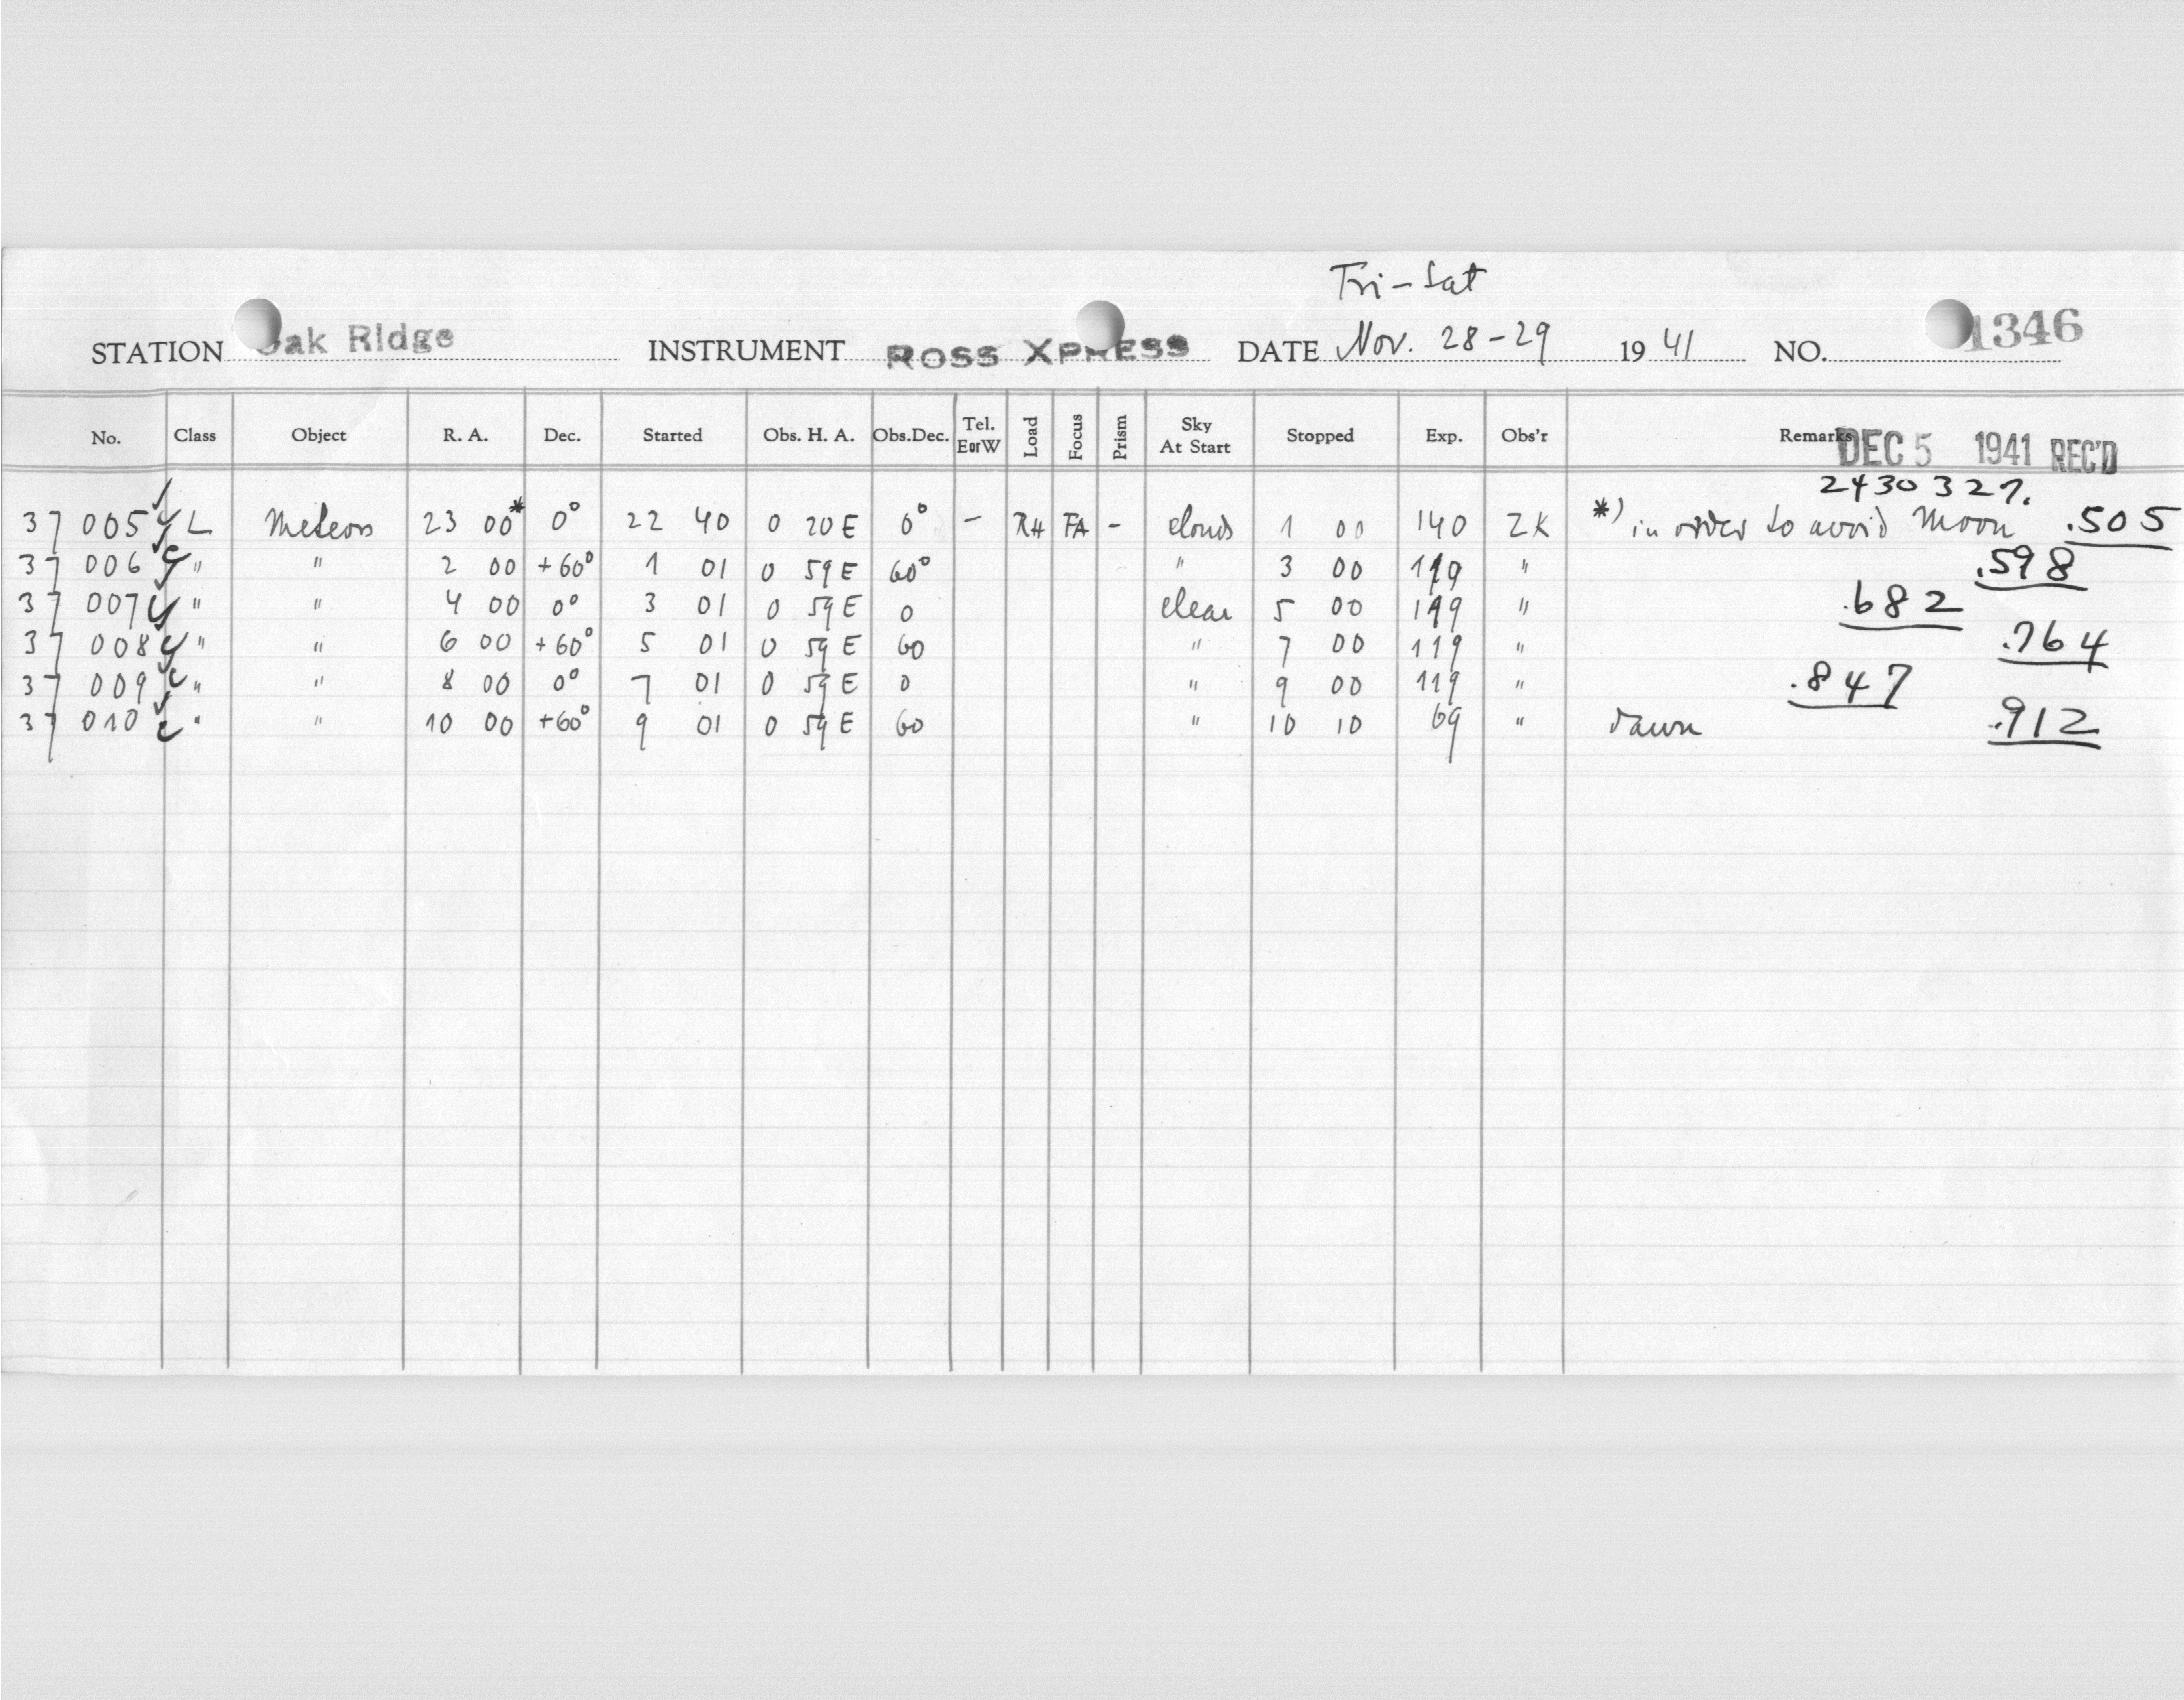 Tri - Sat
STATION Oak Ridge INSTRUMENT ROSS XPRESS DATE Nov. 28-29 19 41 NO. 1346
No. Class Object R. A. Dec. Started Obs. H. A. Obs.Dec. Tel. EorW Load Focus Prism Sky At Start Stopped Exp. Obs'r Remarks DEC 5 1941 REC'D
2430 327.
37 005 L Meteors 23 00* 0° 22 40 0 20 E 0° - RH FA - clouds 1 00 140 ZK *) in order to avoid Moon .505
37 006 " " 2 00 +60° 1 01 0 59 E 60° " 3 00 119 " .598
37 007 " " 4 00 0° 3 01 0 59 E 0 clear 5 00 119 " .682
37 008 " " 6 00 +60° 5 01 0 59 E 60 " 7 00 119 " .764
37 009 " " 8 00 0° 7 01 0 59 E 0 " 9 00 119 " .847
37 010 " " 10 00 +60° 9 01 0 59 E 60 " 10 10 69 " dawn .912